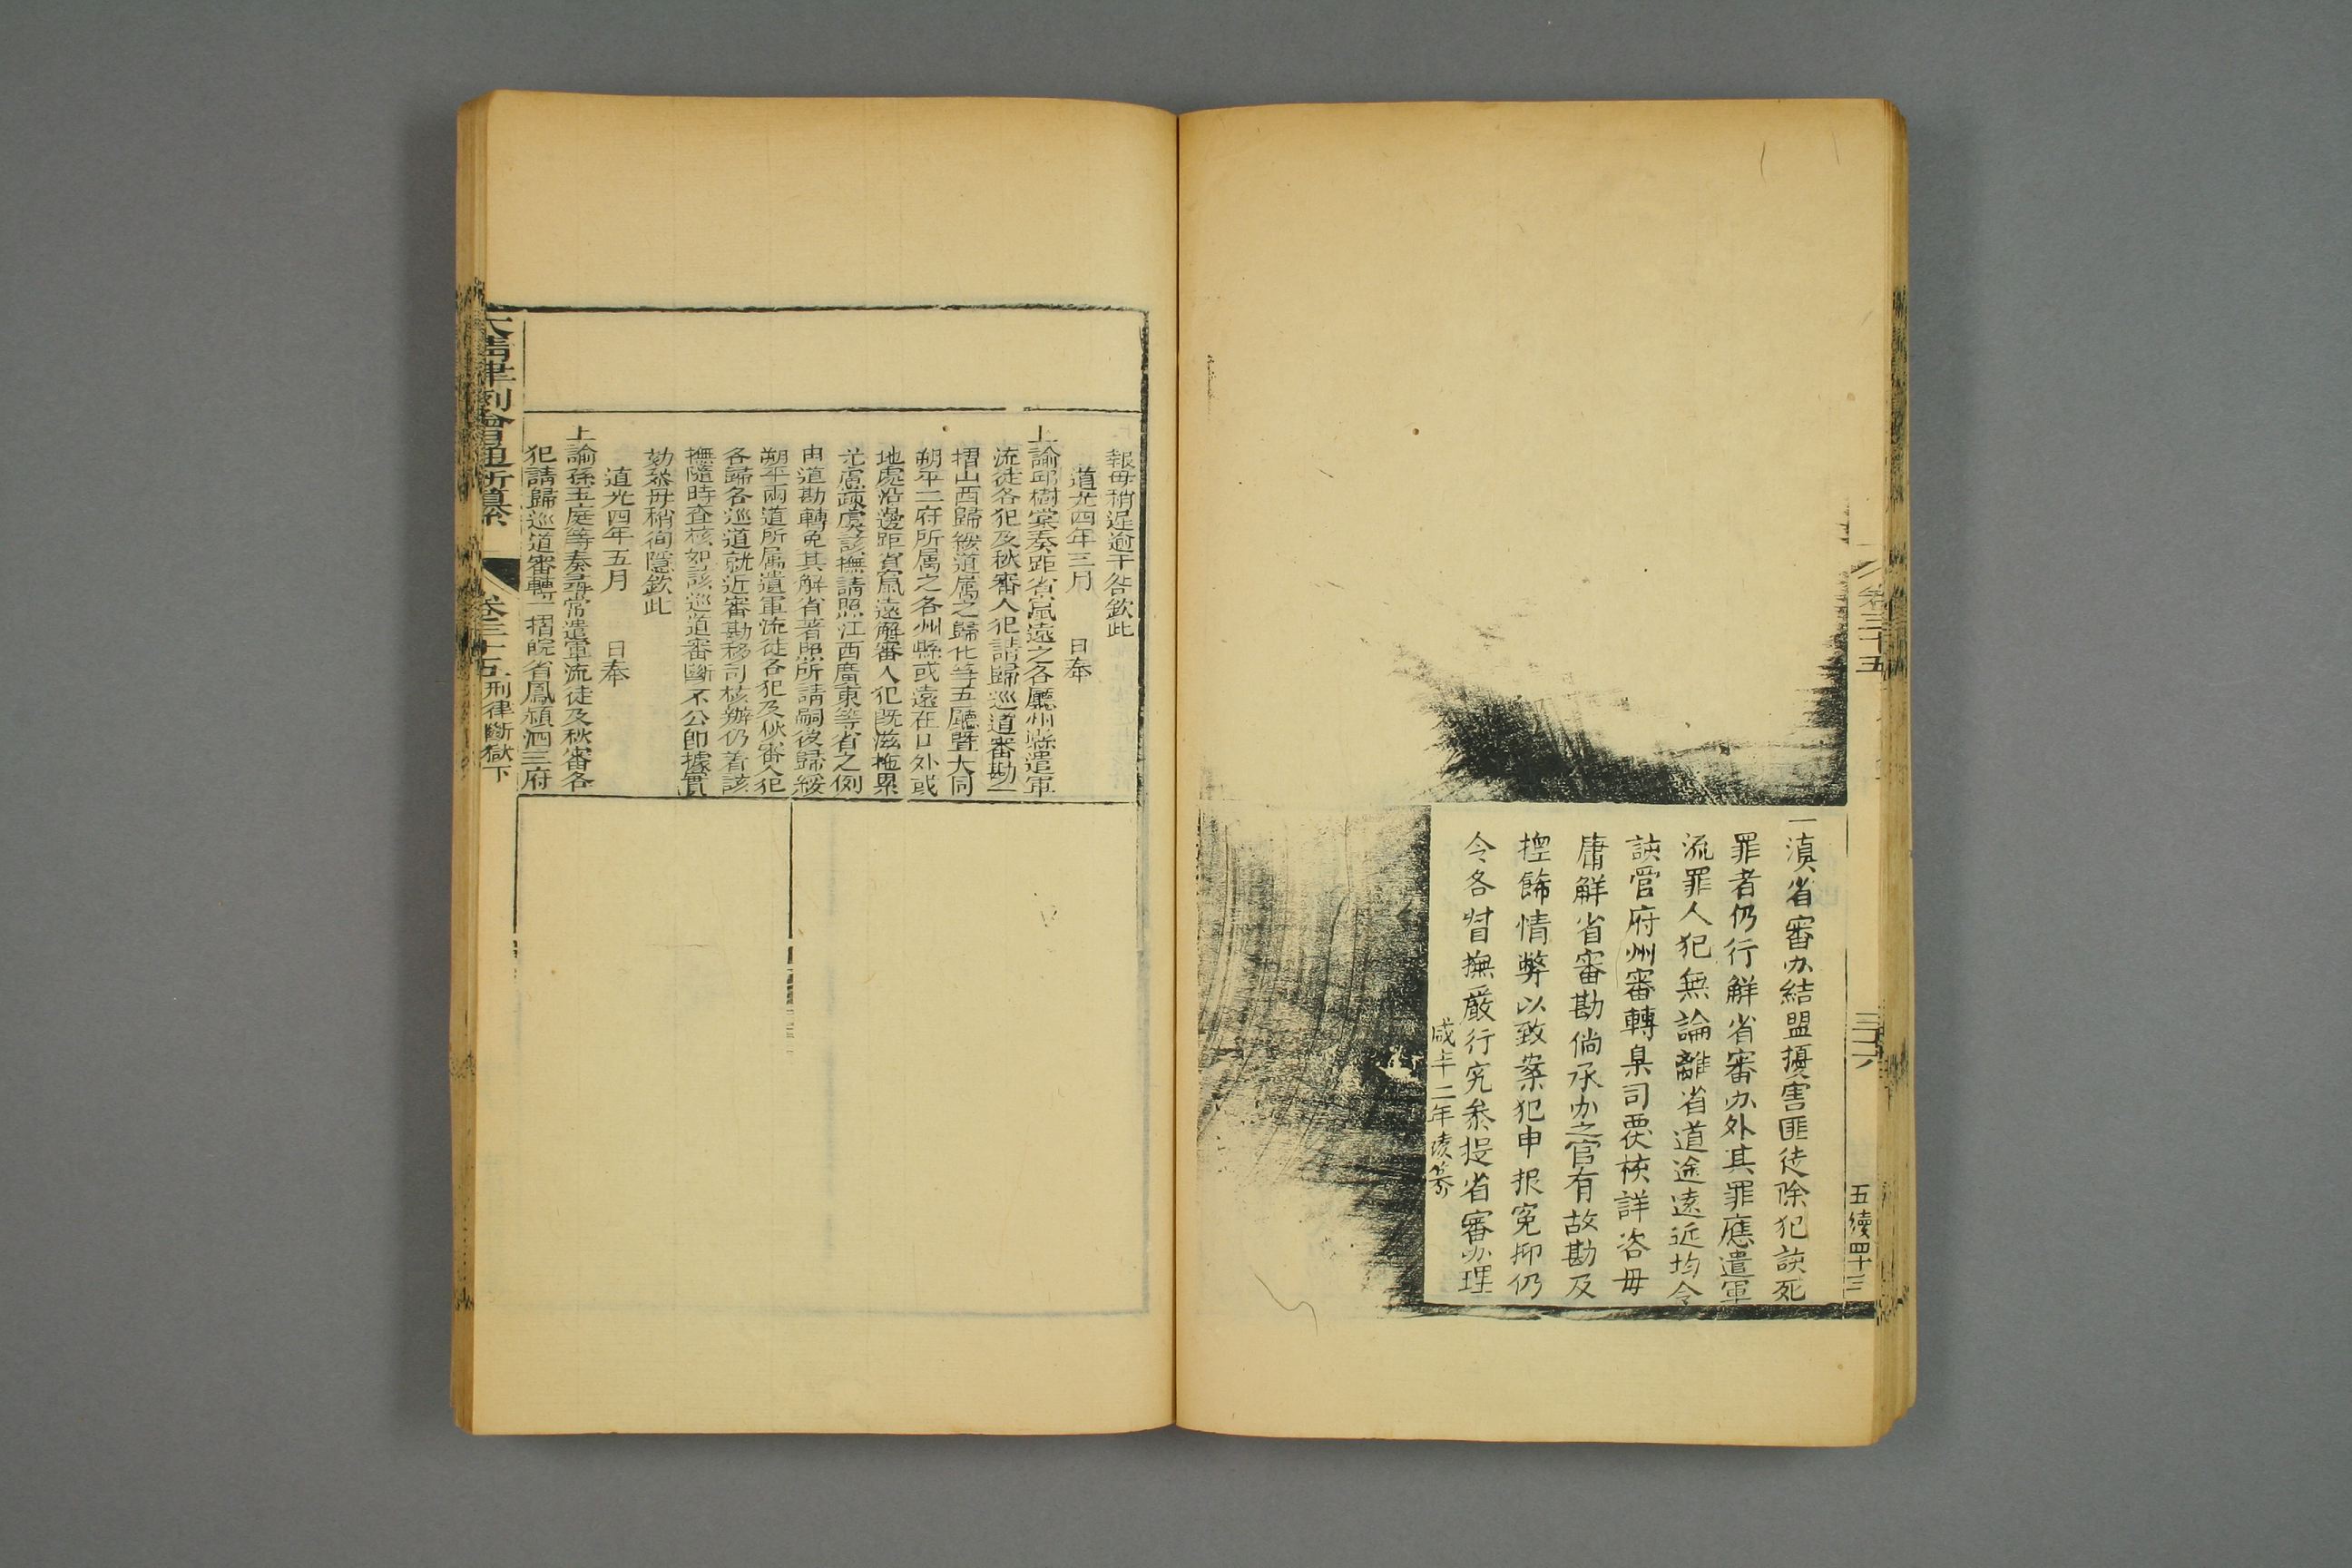 卷三十五
三十六
五續四十三
一滇省審办結盟擾害匪徒除犯該死
罪者仍行解省審办外其罪應遣軍
流罪人犯無論離省道途遠近均令
該管府州審轉臬司覆核詳咨毋
庸解省審勘倘承办之官有故勘及
揑飾情弊以致案犯申报冤抑仍
令各督撫嚴行究叅提省審办理
咸丰二年续纂
報毋稍遲逾干咎欽此
道光四年三月　　日奉
上諭邱樹棠奏距省窵遠之各廳州縣遣軍
流徒各犯及秋審人犯請歸巡道審勘一
摺山西歸綏道屬之歸化等五廳曁大同
朔平二府所属之各州縣或遠在口外或
地處沿邊距省窵遠解審人犯既滋拖累
尤虞疎虞該撫請照江西廣東等省之例
由道勘轉免其解省著照所請嗣後歸綏
朔平兩道所属遣軍流徒各犯及秋審人犯
各歸各巡道就近審勘移司核辦仍着該
撫隨時查核如該巡道審斷不公卽據實
劾叅毋稍徇隱欽此
道光四年五月　　日奉
上諭孫玉庭等奏尋常遣軍流徒及秋審各
犯請歸巡道審轉一摺皖省鳳潁泗三府
大清律例會通新纂
卷三十五 刑律斷獄下